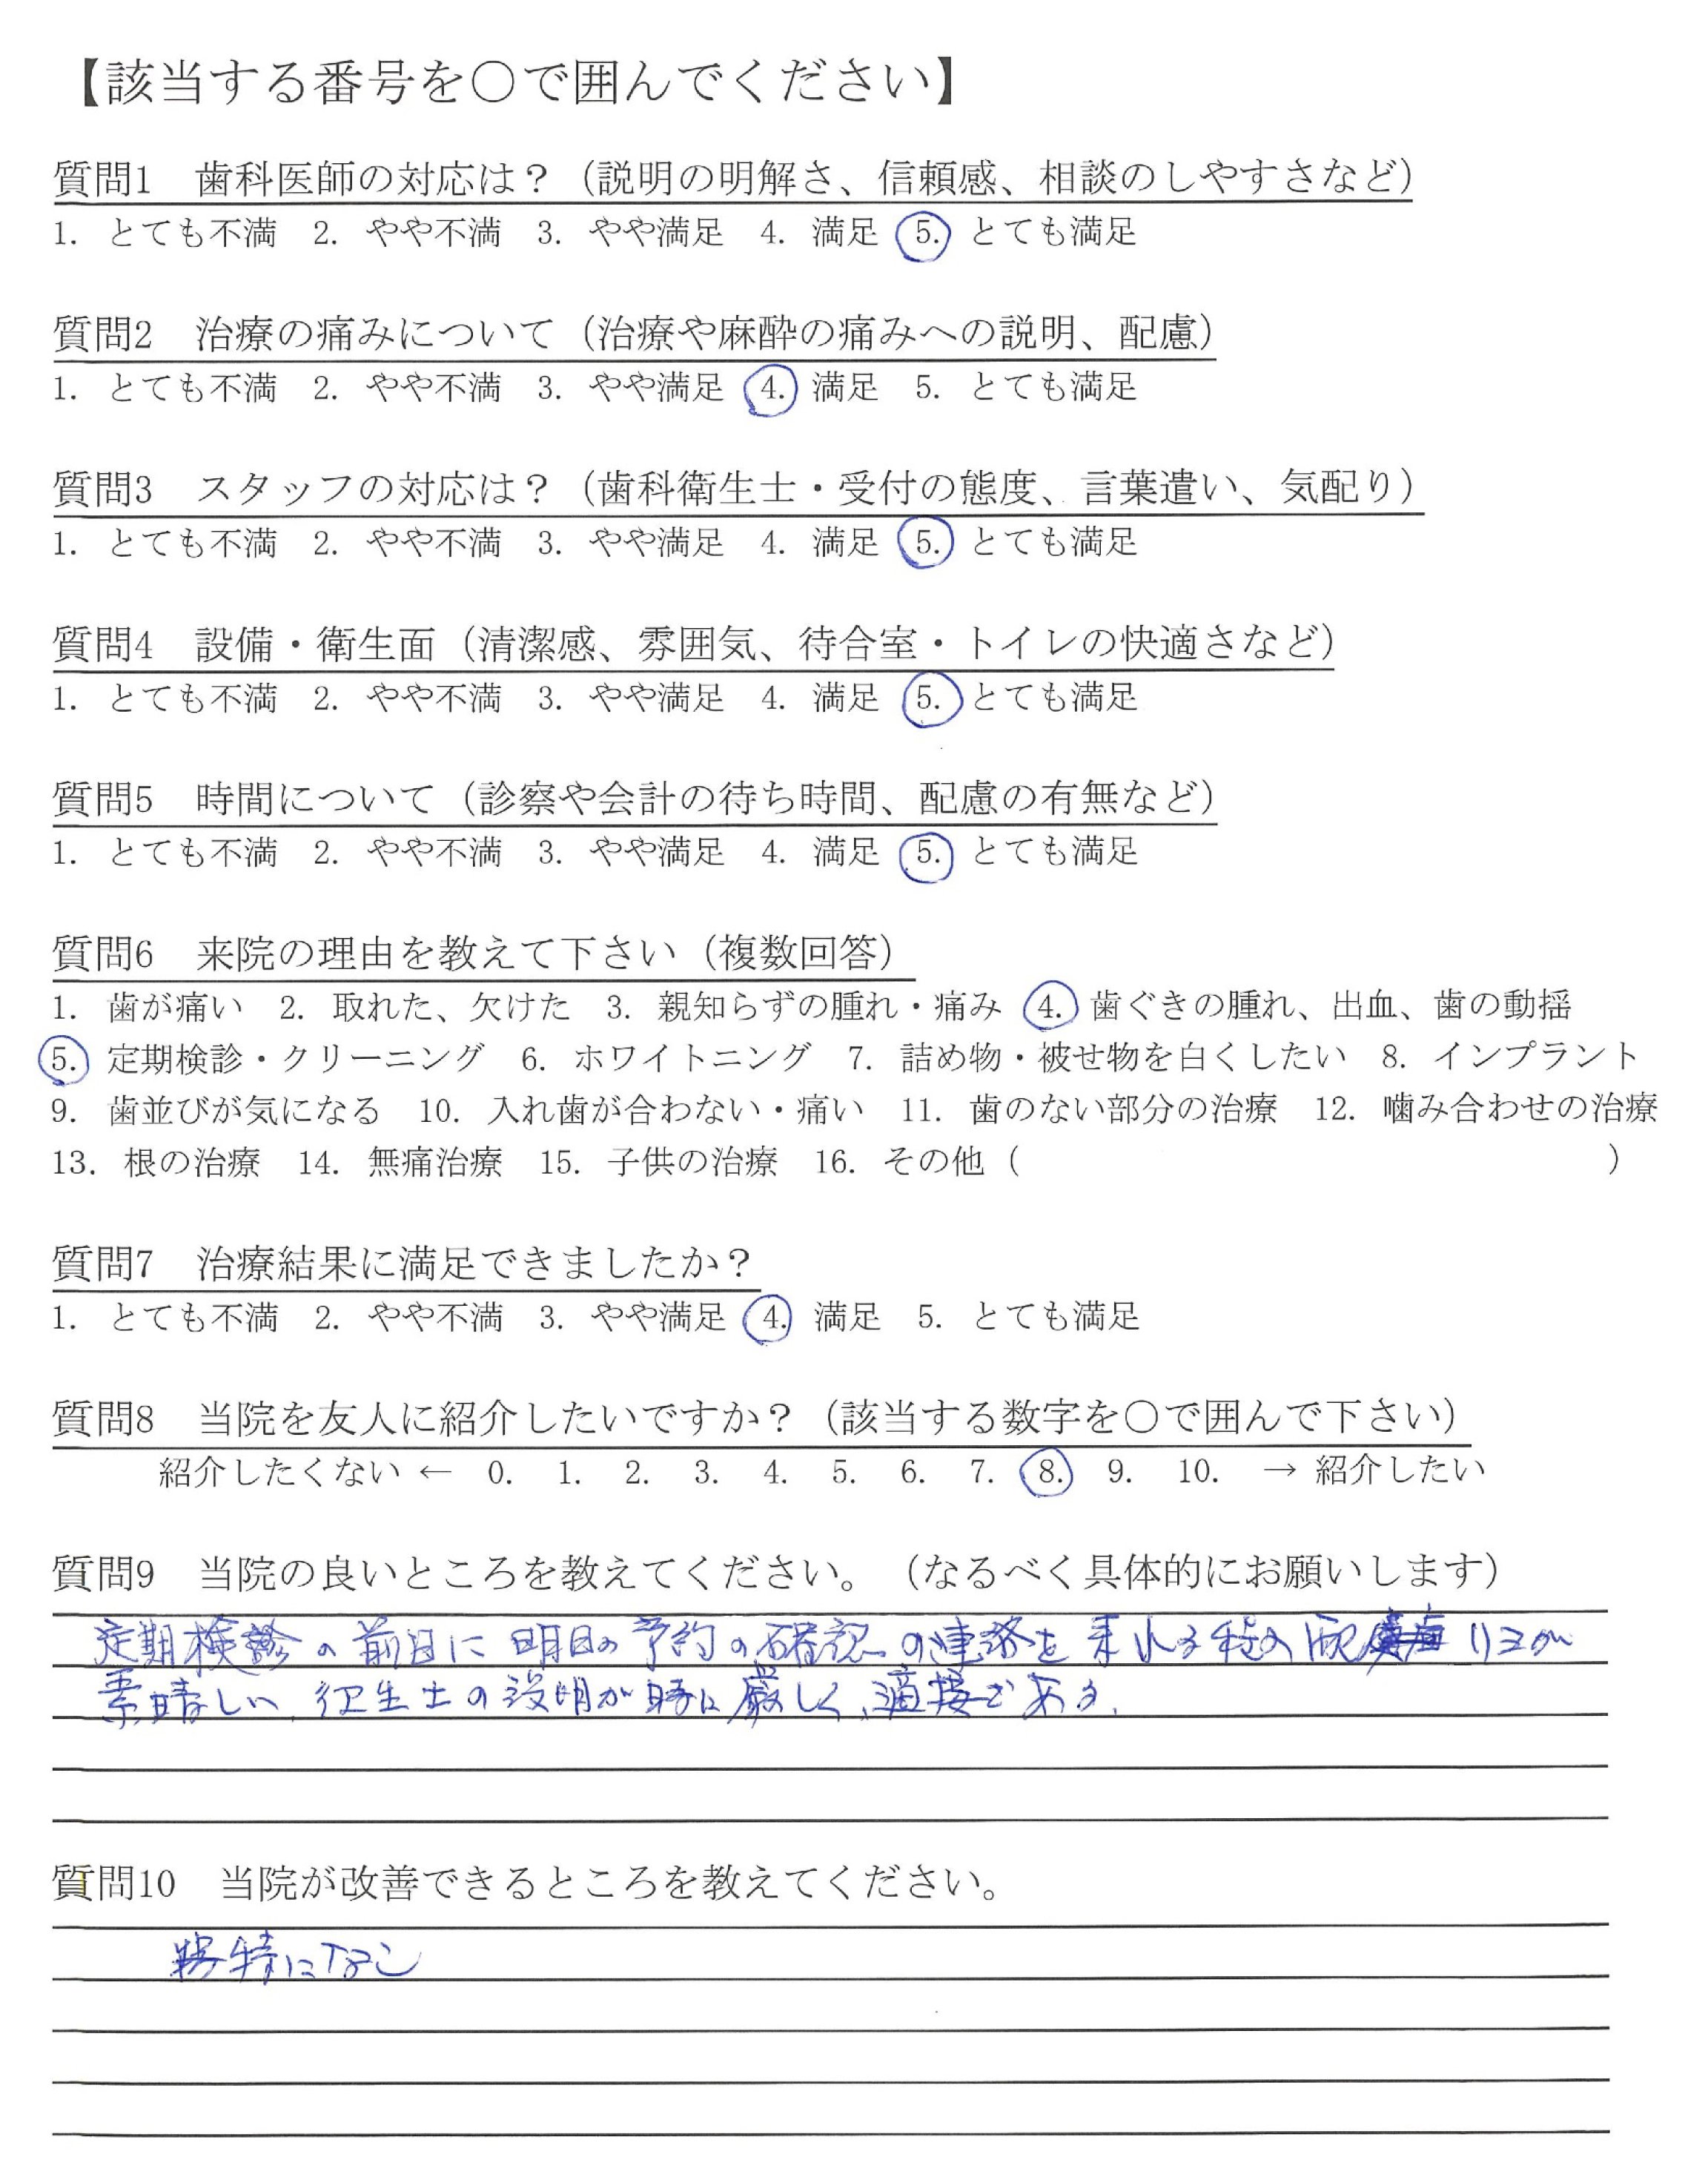 【該当する番号を○で囲んでください】
質問1　歯科医師の対応は？（説明の明解さ、信頼感、相談のしやすさなど）
1. とても不満　2. やや不満　3. やや満足　4. 満足　5. とても満足
質問2　治療の痛みについて（治療や麻酔の痛みへの説明、配慮）
1. とても不満　2. やや不満　3. やや満足　4. 満足　5. とても満足
質問3　スタッフの対応は？（歯科衛生士・受付の態度、言葉遣い、気配り）
1. とても不満　2. やや不満　3. やや満足　4. 満足　5. とても満足
質問4　設備・衛生面（清潔感、雰囲気、待合室・トイレの快適さなど）
1. とても不満　2. やや不満　3. やや満足　4. 満足　5. とても満足
質問5　時間について（診察や会計の待ち時間、配慮の有無など）
1. とても不満　2. やや不満　3. やや満足　4. 満足　5. とても満足
質問6　来院の理由を教えて下さい（複数回答）
1. 歯が痛い　2. 取れた、欠けた　3. 親知らずの腫れ・痛み　4. 歯ぐきの腫れ、出血、歯の動揺
5. 定期検診・クリーニング　6. ホワイトニング　7. 詰め物・被せ物を白くしたい　8. インプラント
9. 歯並びが気になる　10. 入れ歯が合わない・痛い　11. 歯のない部分の治療　12. 噛み合わせの治療
13. 根の治療　14. 無痛治療　15. 子供の治療　16. その他（　　　）
質問7　治療結果に満足できましたか？
1. とても不満　2. やや不満　3. やや満足　4. 満足　5. とても満足
質問8　当院を友人に紹介したいですか？（該当する数字を○で囲んで下さい）
紹介したくない ←　0.　1.　2.　3.　4.　5.　6.　7.　8.　9.　10.　→ 紹介したい
質問9　当院の良いところを教えてください。（なるべく具体的にお願いします）
定期検診の前日に明日の予約の確認の連絡を
素晴しい、衛生士の説明が時に厳しく、適切である。
質問10　当院が改善できるところを教えてください。
特になし